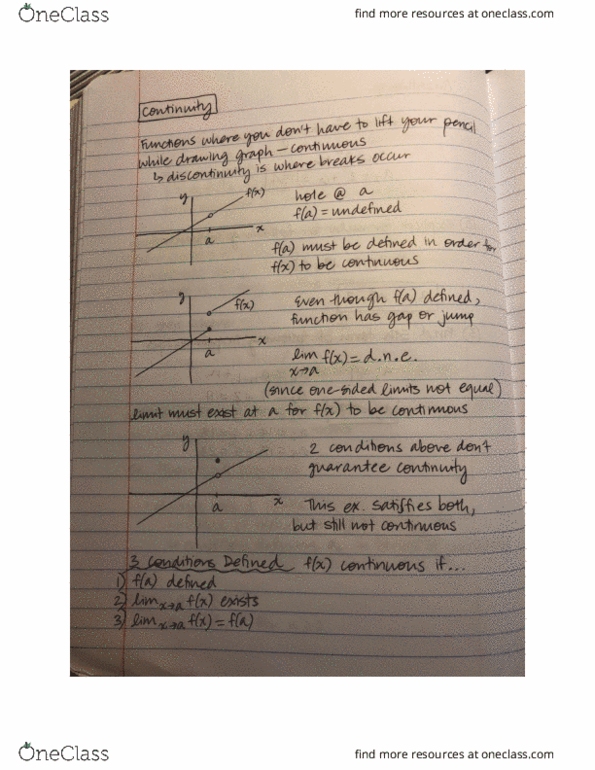 OneClass
find more resources at oneclass.com
continuity
Functions where you don't have to lift your pencil
while drawing graph – continuous
↳ discontinuity is where breaks occur
y
f(x)
hole @ a
f(a) = undefined
x
a
f(a) must be defined in order for
f(x) to be continuous
y
f(x)
Even though f(a) defined,
function has gap or jump
x
a
lim f(x) = d.n.e.
x→a
(since one-sided limits not equal)
limit must exist at a for f(x) to be continuous
y
2 conditions above don't
guarantee continuity
x
a
This ex. satisfies both,
but still not continuous
3 conditions Defined f(x) continuous if...
1) f(a) defined
2) lim x→a f(x) exists
3) lim x→a f(x) = f(a)
OneClass
find more resources at oneclass.com